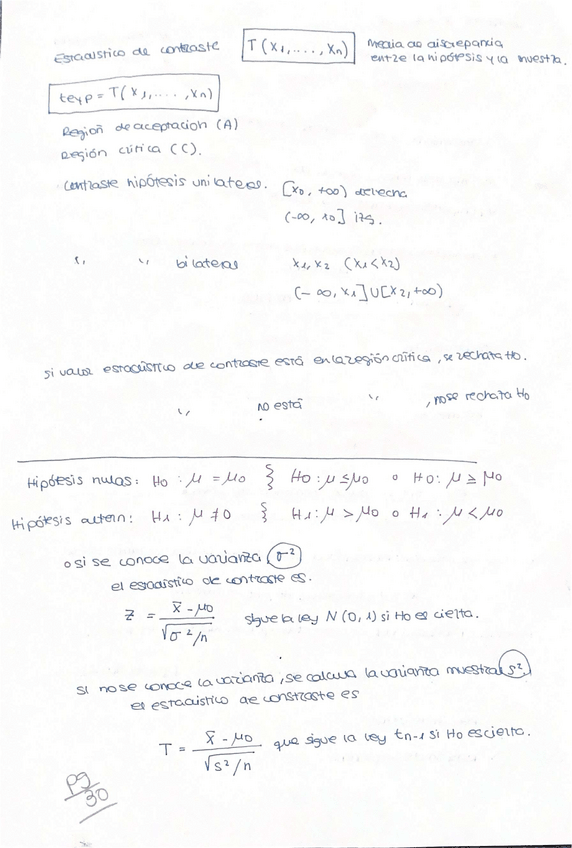 Estadístico de contraste T(x1,...., xn) Media de discrepancia
entre la hipótesis y la muestra.
texp = T(x1,....,xn)
Región de aceptacion (A)
Región critica (C).
contraste hipótesis unilateral. [x0, +∞) derecha
(-∞, 10] izq.
" " bilateral x1, x2 (x1<x2)
(-∞, x1] U [x2, +∞)
si valor estadístico de contraste está en la región crítica, se rechata Ho.
" no está " , no se rechata Ho
Hipótesis nulas: Ho : μ = μo } Ho : μ ≤ μo o Ho: μ ≥ μo
Hipótesis altern: H1 : μ ≠ 0 } H1 : μ > μo o H1 : μ < μo
o si se conoce la varianza, σ²
el estadistico de contraste es.
Z = x̄ - μo / √σ²/n sigue la ley N (0, 1) si Ho es cierta.
si no se conoce la varianza, se calcula la varianza muestral s²,
el estadístico de constraste es
T = x̄ - μo / √s²/n que sigue la ley tn-1 si Ho es cierto.
pg 30